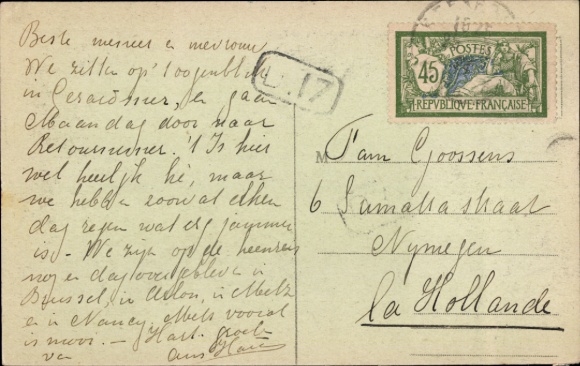 Beste meneer en mevrouw
We zitten op 't oogenblik
in Gerardmer, en gaan
Maandag door naar
Retournemer. 't Is hier
wel heerlijk hè, maar
we hebben zoowat elken
dag regen wat erg jammer
is - We zijn op de heenreis
nog en dag overgebleven in
Brussel, in Arlon, in Metz
en in Nancy. Metz vooral
is mooi. - Hart. groeten
van
17
POSTES
45
REPVBLIQVE FRANÇAISE
M Fam Goossens
6 Sumatrastraat
Nymegen
la Hollande